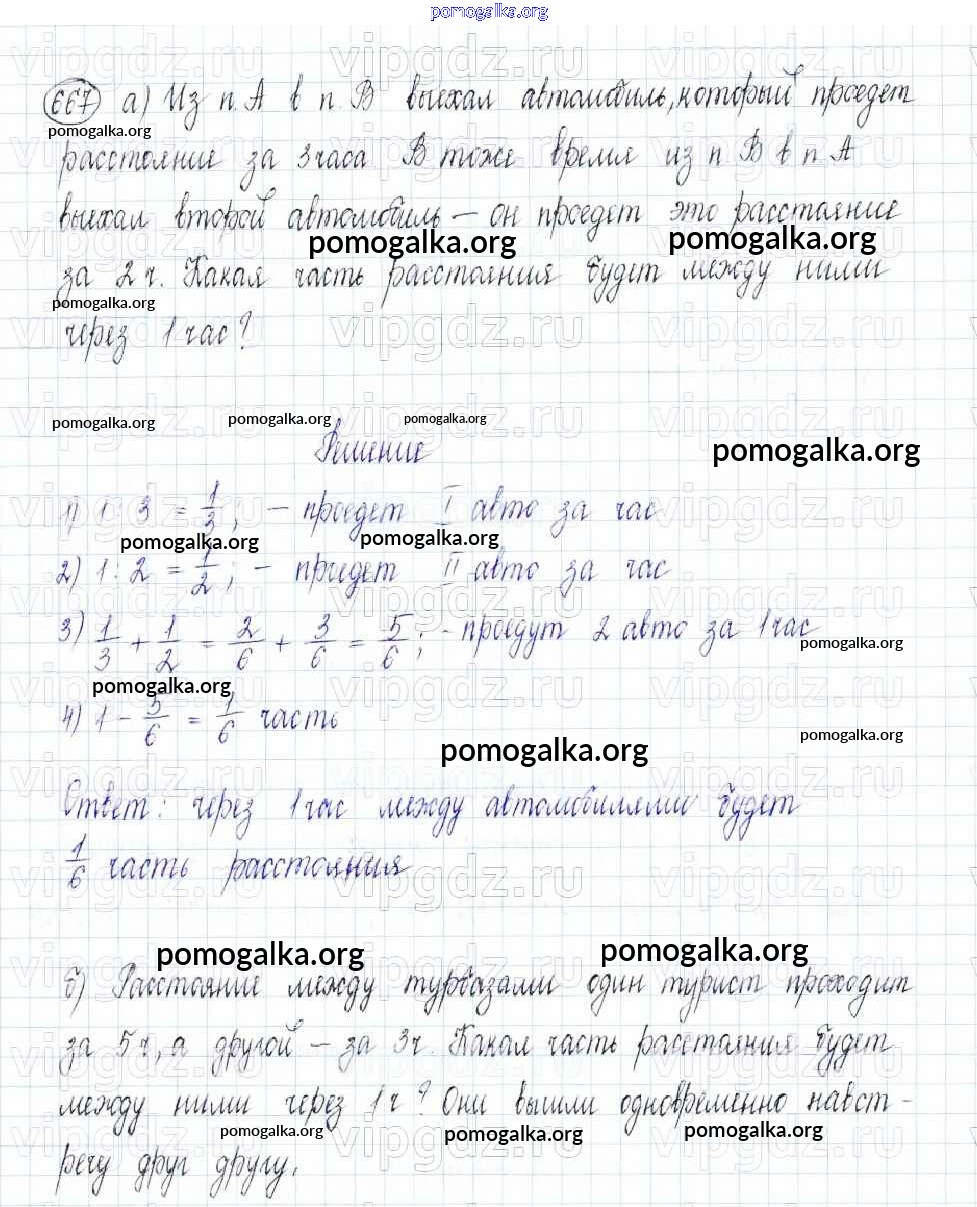 pomogalka.org
667 а) Из п. А в п. В выехал автомобиль, который проедет
pomogalka.org
расстояние за 3 часа В тоже время из п В в п. А
выехал второй автомобиль – он проедет это расстояние
pomogalka.org pomogalka.org
за 2 ч. Какая часть расстояния будет между ними
pomogalka.org
через 1 час?
pomogalka.org pomogalka.org pomogalka.org
Решение pomogalka.org
1) 1 : 3 = 1/3; – проедет I авто за час
pomogalka.org pomogalka.org
2) 1 : 2 = 1/2; – проедет II авто за час
3) 1/3 + 1/2 = 2/6 + 3/6 = 5/6; – проедут 2 авто за 1 час
pomogalka.org
pomogalka.org
4) 1 – 5/6 = 1/6 часть
pomogalka.org
pomogalka.org
Ответ: через 1 час между автомобилями будет
1/6 часть расстояния
pomogalka.org pomogalka.org
б) Расстояние между турбазами один турист проходит
за 5 ч, а другой – за 3 ч. Какая часть расстояния будет
между ними через 1 ч? Они вышли одновременно навст-
pomogalka.org pomogalka.org pomogalka.org
речу друг другу.
vipgdz.ru